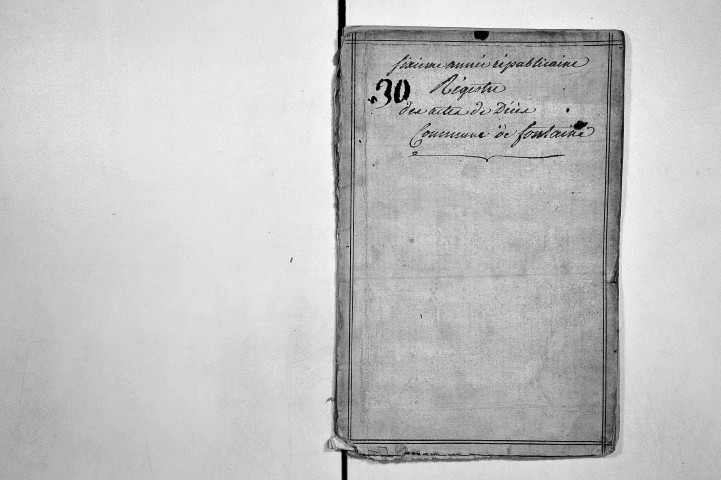 sixieme année républicaine
30
Régistre
des actes de Décès
Commune de fontaine